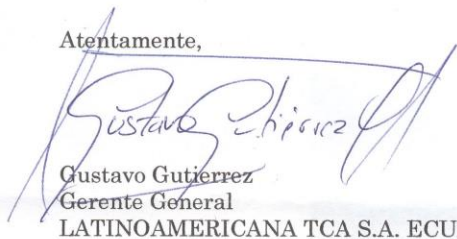 Atentamente,
Gustavo Gutiérrez
Gustavo Gutierrez
Gerente General
LATINOAMERICANA TCA S.A. ECU